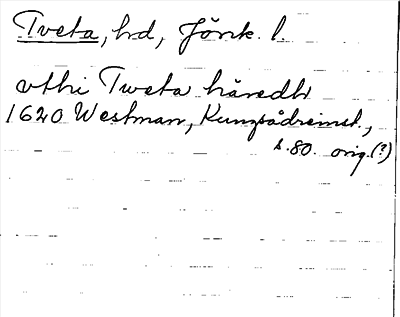 Tveta, hd, Jönk. l.
vthi Tweta häredh
1620 Westman, Kungsådreinst.,
s. 80. orig. (?)